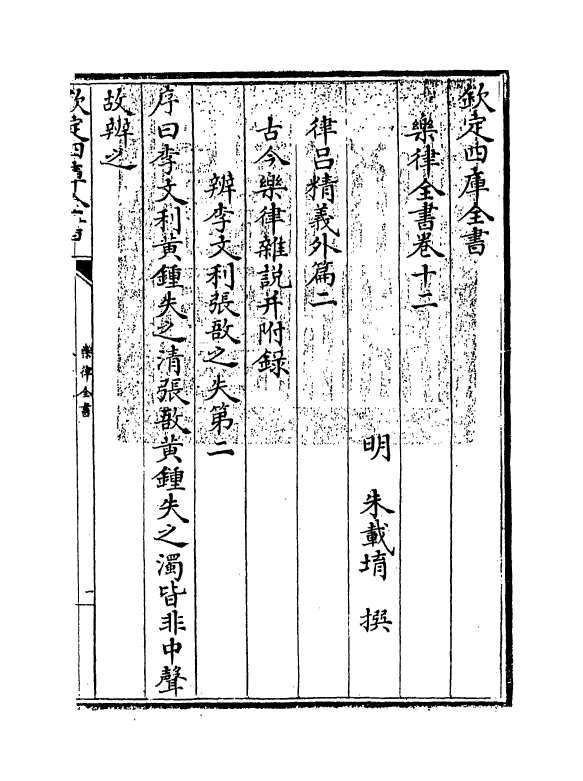 欽定四庫全書
樂律全書卷十二
明 朱載堉 撰
律吕精義外篇二
古今樂律雜說并附錄
辨李文利張敔之失第二
序曰李文利黃鍾失之清張敔黃鍾失之濁皆非中聲
故辨之
欽定四庫全書
樂律全書
一